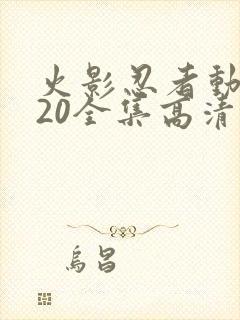 火影忍者動
20全集高清
烏昌